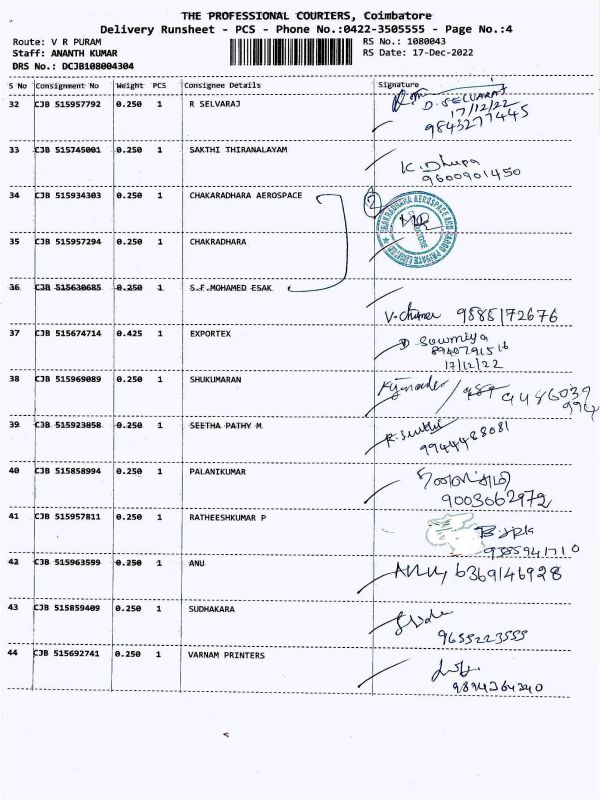 THE PROFESSIONAL COURIERS, Coimbatore
Delivery Runsheet - PCS - Phone No.:0422-3505555 - Page No.:4
Route: V R PURAM
RS No.: 1080043
Staff: ANANTH KUMAR
RS Date: 17-Dec-2022
DRS No.: DCJB108004304
S No Consignment No Weight PCS Consignee Details Signature
32 CJB 515957792 0.250 1 R SELVARAJ
D. SELVARAJ
17/12/22
9843277445
33 CJB 515745001 0.250 1 SAKTHI THIRANALAYAM
K. Dhupa
9600901450
34 CJB 515934303 0.250 1 CHAKARADHARA AEROSPACE
2
35 CJB 515957294 0.250 1 CHAKRADHARA
36 CJB 515630685 0.250 1 S.F.MOHAMED ESAK
9585172676
37 CJB 515674714 0.425 1 EXPORTEX
D Sowmiya
8940791516
17/12/22
38 CJB 515969089 0.250 1 SHUKUMARAN
39 CJB 515923858 0.250 1 SEETHA PATHY M
9944488081
40 CJB 515858994 0.250 1 PALANIKUMAR
9003062972
41 CJB 515957811 0.250 1 RATHEESHKUMAR P
9385941710
42 CJB 515963599 0.250 1 ANU
Anu 6369146928
43 CJB 515859409 0.250 1 SUDHAKARA
9655223555
44 CJB 515692741 0.250 1 VARNAM PRINTERS
9894364340